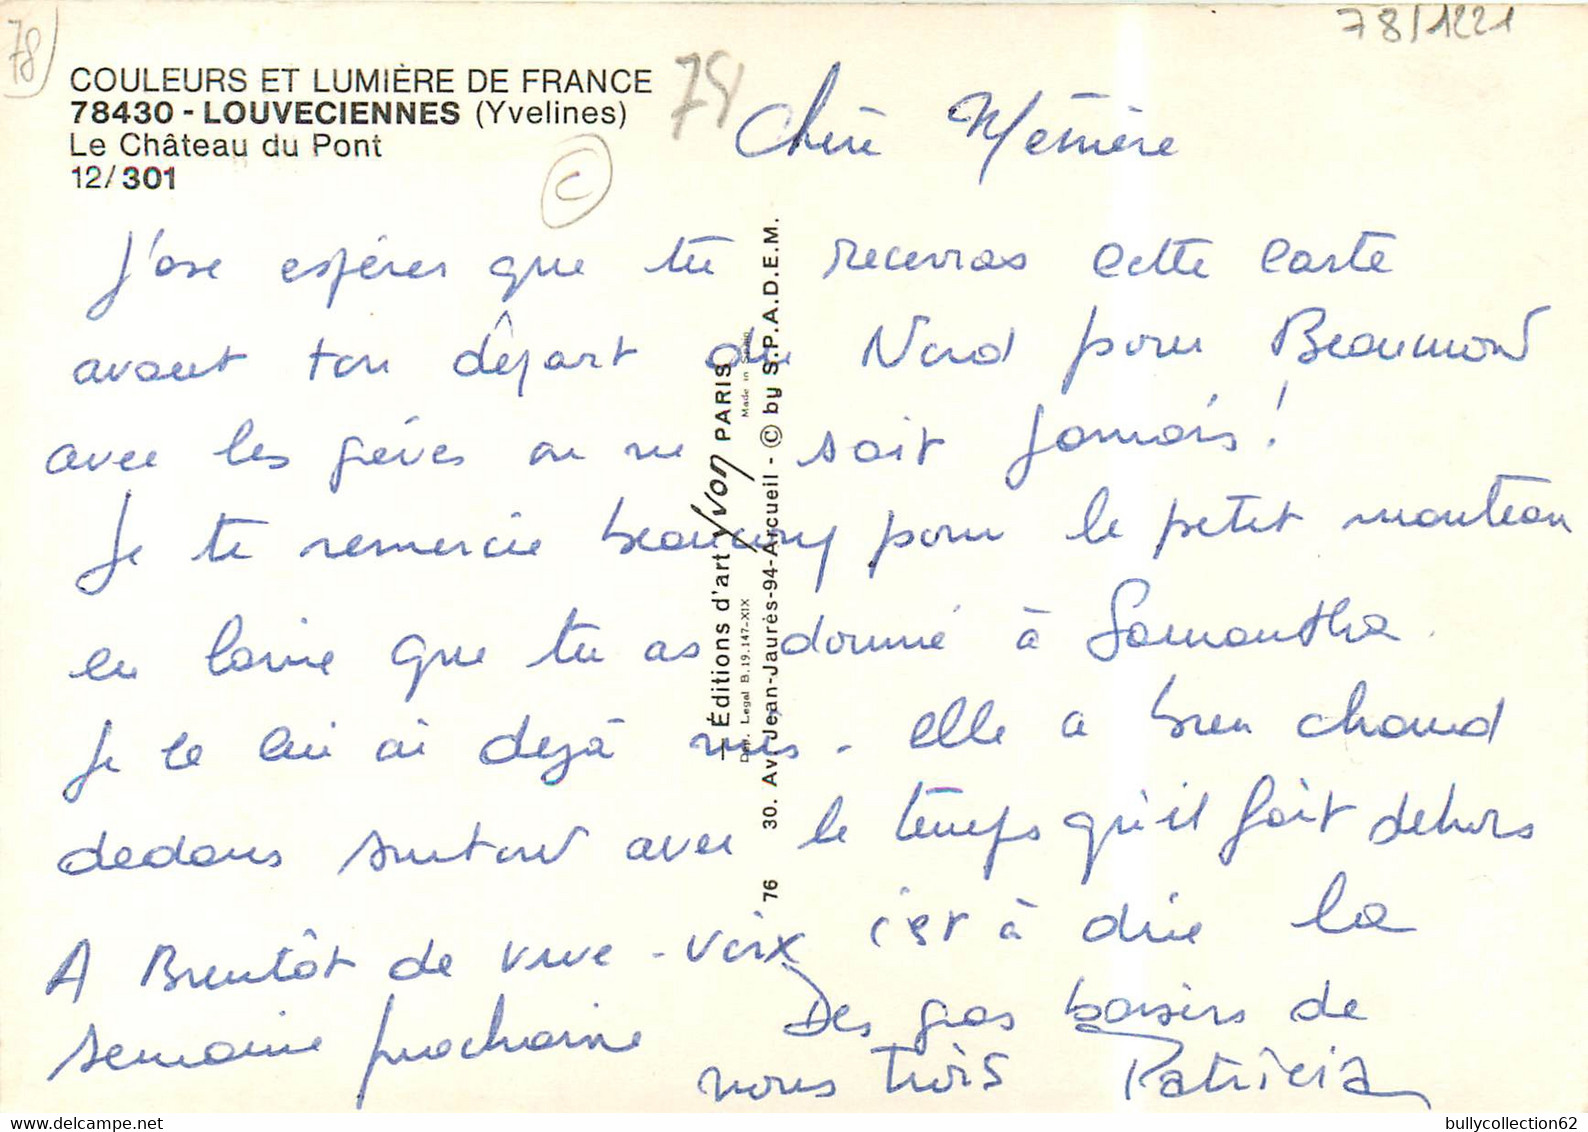 78
78/1221
COULEURS ET LUMIÈRE DE FRANCE
78430 - LOUVECIENNES (Yvelines)
Le Château du Pont
12/301
78
C
Chère Mémère
J'ose espérer que tu recevras cette carte
avant ton départ du Nord pour Beaumont
avec les grèves on ne sait jamais!
Je te remercie beaucoup pour le petit manteau
en laine que tu as donné à Samantha.
Je le lui ai déjà mis. elle a bien chaud
dedans surtout avec le temps qu'il fait dehors
A Bientôt de vive-voix c'est à dire la
semaine prochaine Des gros baisers de
nous trois Patricia
Éditions d'art Yvon PARIS
Dép. Legal B.19.147-XIX Made in Spain
76 30. Av. Jean-Jaurès-94-Arcueil - © by S.P.A.D.E.M.
bullycollection62